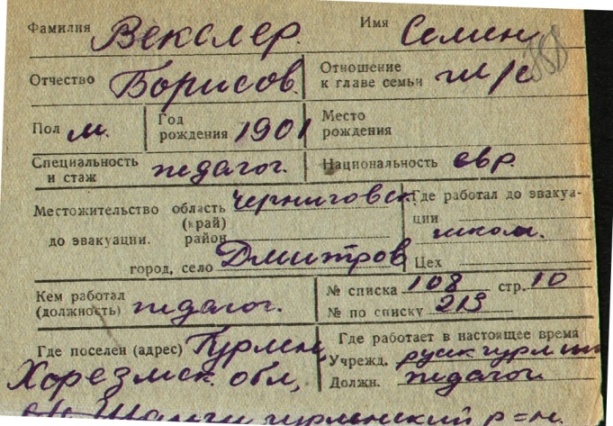 Фамилия Векслер. Имя Семен
Отчество Борисов. Отношение к главе семьи гл/с
Пол м. Год рождения 1901 Место рождения
Специальность и стаж педагог. Национальность евр.
Местожительство область Черниговск. Где работал до эвакуа-
(край) ции
до эвакуации. район школ.
город, село Дмитров Цех
Кем работал (должность) педагог. № списка 108 стр. 10
№ по списку 213
Где поселен (адрес) Гурлен, Где работает в настоящее время
Учрежд. русск гурл
Хорезмск. обл, Должн. педагог
гурленский р=н.